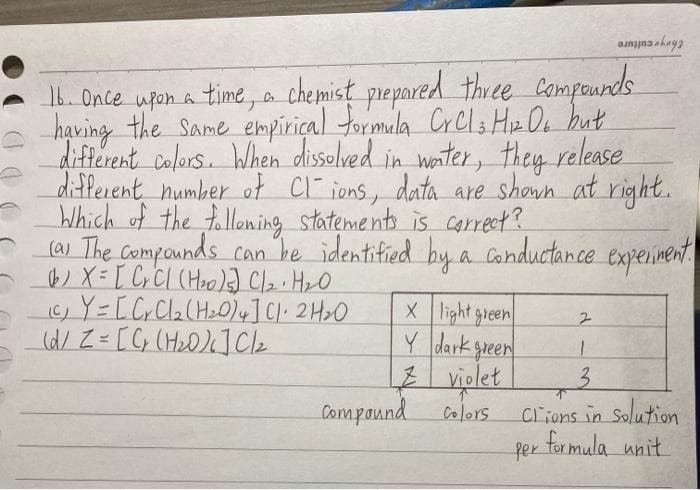 Choyx culture
16. Once upon a time, a chemist prepared three compounds
having the same empirical formula CrCl3H12O6 but
different colors. When dissolved in water, they release
different number of Cl- ions, data are shown at right.
Which of the following statements is correct?
(a) The compounds can be identified by a conductance experiment.
(b) X=[CrCl(H2O)5]Cl2·H2O
(c) Y=[CrCl2(H2O)4]Cl·2H2O
(d) Z=[Cr(H2O)6]Cl2
X light green 2
Y dark green 1
Z violet 3
compound colors Cl- ions in solution
per formula unit